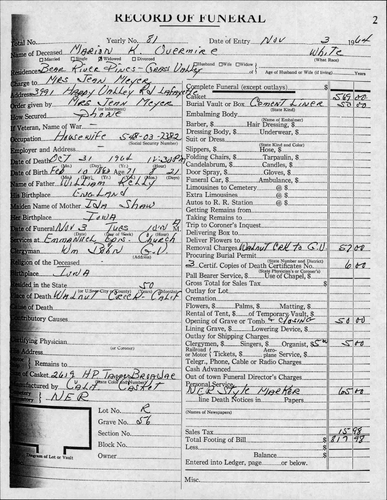 RECORD OF FUNERAL
2
Total No. Yearly No. 81 Date of Entry Nov 3 1964
Name of Deceased Marian K. Overmire White
Married Single Widowed Divorced Husband Wife Widow (What Race)
Residence Bear River Pines - Grass Valley Age of Husband or Wife (if living) Years
Charge to Mrs Jean Meyer
Address 3991 Happy Valley Rd Lafayette
Order given by Mrs Jean Meyer
How Secured Phone
Veteran, Name of War
Occupation Housewife 548-03-7382
(Social Security Number)
Employer and Address
Date of Death Oct 31 1964
Date of Birth Feb 10 1893 Age 71 8 21
Name of Father William Kelly
His Birthplace England
Maiden Name of Mother Ida Shaw
Her Birthplace Iowa
Date of Funeral Nov 3 Tues 10 A M
Services at Emmanuel Epis. Church
Clergyman Wm
Religion of the Deceased
Birthplace Iowa
Resided in the State 50
Place of Death Walnut Creek Calif
Cause of Death
Contributory Causes
Certifying Physician
(or Coroner)
His Address
Remains to
No. of Casket 2619 HP
Manufactured by Calif Casket
NER
Lot No. R
Grave No. 56
Section No.
Block No.
Owner
Diagram of Lot or Vault
Complete Funeral (except outlays) $
Casket $ 569.00
Burial Vault or Box Cement Liner 50.00
(State Kind)
Embalming Body
(State Name of Embalmer)
Barber, $ Hair Dressing, $
Dressing Body, $ Underwear, $
Suit or Dress
(State Kind and Color)
Slippers, $ Hose, $
Folding Chairs, $ Tarpaulin, $
Candelabrum, $ Candles, $
Door Spray, $ Gloves, $
Funeral Car, $ Ambulance, $
Limousines to Cemetery @ $
Extra Limousines @ $
Autos to R. R. Station @ $
Getting Remains from
Taking Remains to
Trip to Coroner's Inquest
Delivering Box to
Deliver Flowers to
Removal Charges Walnut Crk to G.V. 57.00
Procuring Burial Permit
(State Number and District)
3 Certif. Copies of Death Certificates No. 6.00
(State Physician's or Coroner's)
Pall Bearer Service, $ Use of Chapel, $
Gross Total for Sales Tax $
Outlay for Lot
Cremation
Flowers, $ Palms, $ Matting, $
Rental of Tent, $ of Temporary Vault, $
Opening of Grave or Tomb & Closing 50.00
Lining Grave, $ Lowering Device, $
Outlay for Shipping Charges
Clergymen, $ Singers, $ Organist, $5.00 5.00
Railroad or Motor Tickets, $ Aero-plane Service, $
Telegr., Phone, Cable or Radio Charges
Cash Advanced
Out of town Funeral Director's Charges
Personal Service
NER Style Marker 65.00
line Death Notices in Papers
(Names of Newspapers)
Sales Tax $ 15.98
Total Footing of Bill $ 817.98
Less $
Balance $
Entered into Ledger, page or below.
Misc.